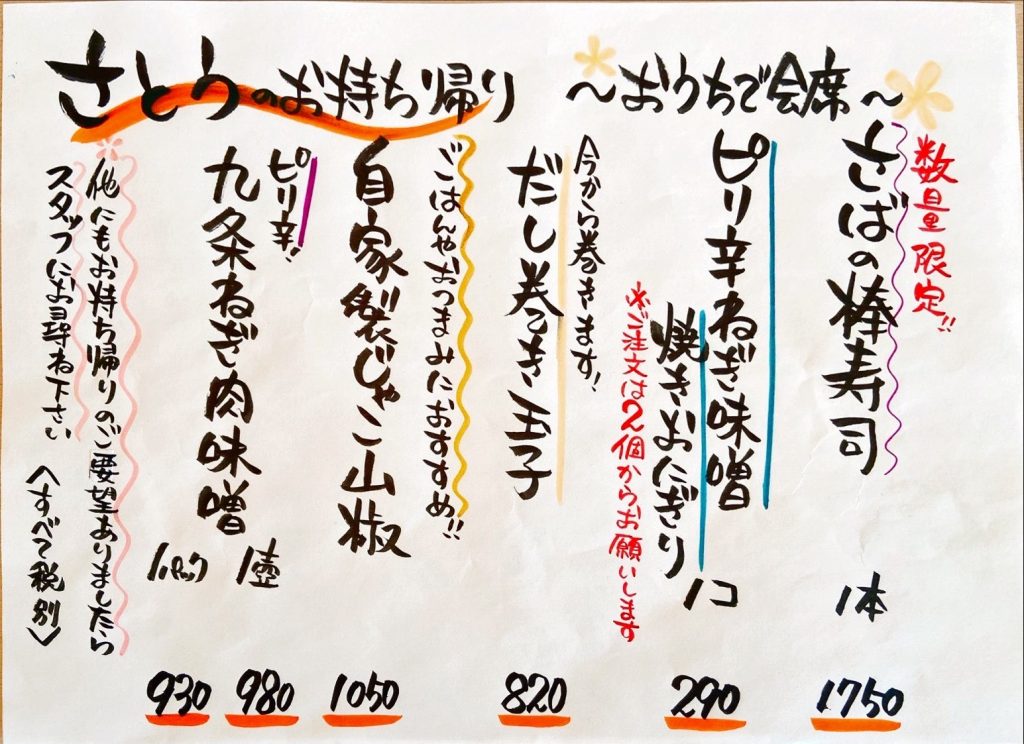 さとうのお持ち帰り ～おうちで会席～
数量限定!!
さばの棒寿司 1本 1750
ピリ辛ねぎ味噌
焼きおにぎり 1コ 290
※ご注文は2個からお願いします
今から巻きます!
だし巻き玉子 820
ごはんやおつまみにおすすめ!!
自家製じゃこ山椒 1050
ピリ辛!
九条ねぎ肉味噌 1壺 980
1パック 930
他にもお持ち帰りのご要望ありましたら
スタッフにお尋ね下さい
<すべて税別>